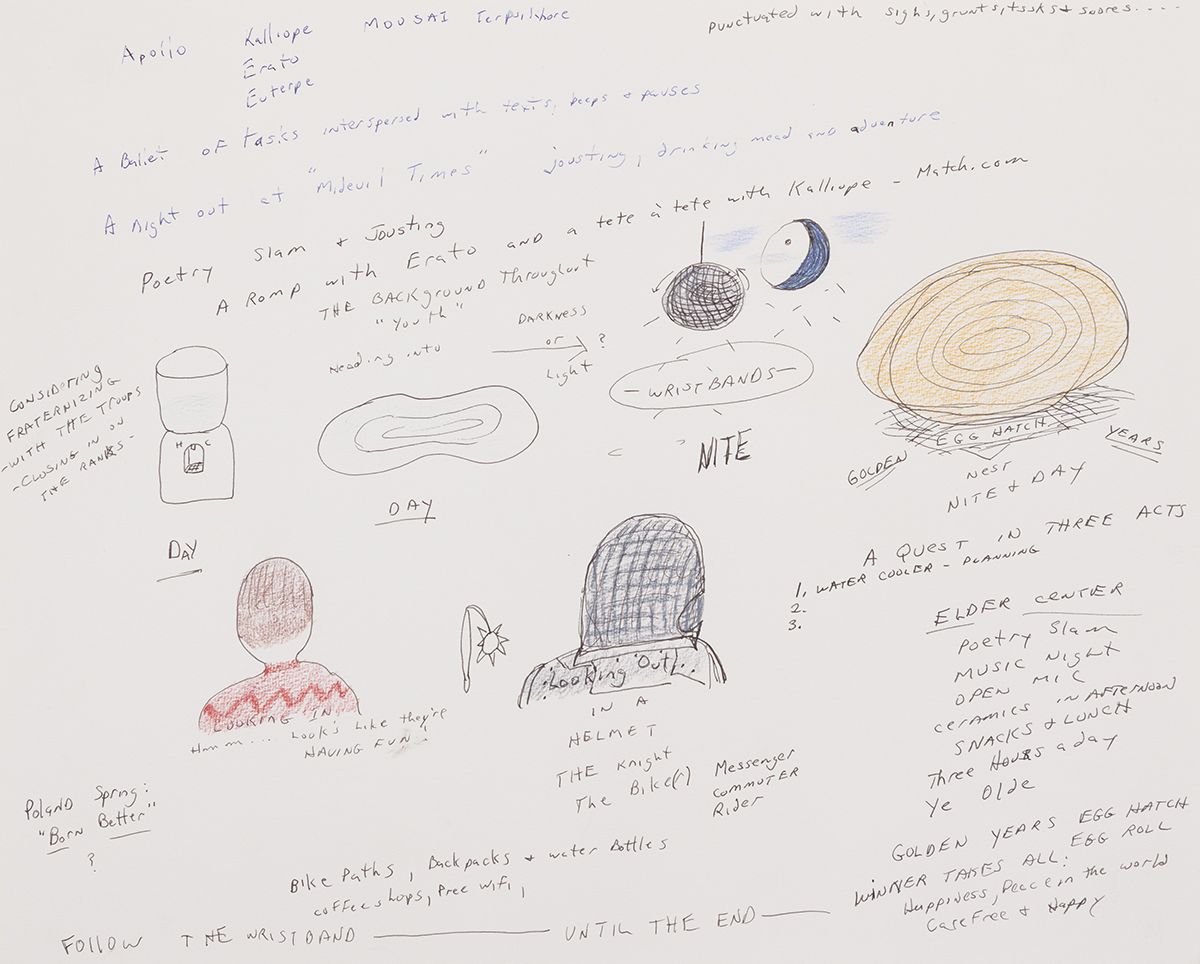 Apollo Kalliope MOUSAI Terpsichore
Erato
Euterpe
punctuated with sighs, grunts, tssks + snores....
A Ballet of tasks interspersed with texts, beeps + pauses
A Night out at "Midevil Times" jousting, drinking mead and adventure
Poetry Slam + Jousting
A Romp with Erato and a tete à tete with Kalliope - Match.com
THE BACKGROUND Throughout
"Youth"
Heading into DARKNESS
or ?
Light
CONSIDATING
FRATERNIZING
- WITH THE TROUPS
- CLOSING IN ON
THE RANKS -
H C
DAY
DAY
- WRISTBANDS -
NITE
EGG HATCH
GOLDEN YEARS
NEST
NITE + DAY
A QUEST IN THREE ACTS
1. WATER COOLER - PLANNING
2.
3.
ELDER CENTER
Poetry Slam
MUSIC Night
OPEN MIC
CERAMICS IN AFTERNOON
SNACKS & LUNCH
Three Hours a day
Ye Olde
LOOKING IN
Hmmm... Look's Like they're
HAVING FUN!
Looking Out!..
IN A
HELMET
THE Knight
The Bike(r) Messenger
COMMUTER
Rider
Poland Spring:
"Born Better"
?
Bike Paths, Backpacks + water Bottles
coffee shops, free wifi,
GOLDEN YEARS EGG HATCH
WINNER TAKES ALL: EGG ROLL
Happiness, Peace in the world
CaseFree + Happy
FOLLOW THE WRISTBAND UNTIL THE END